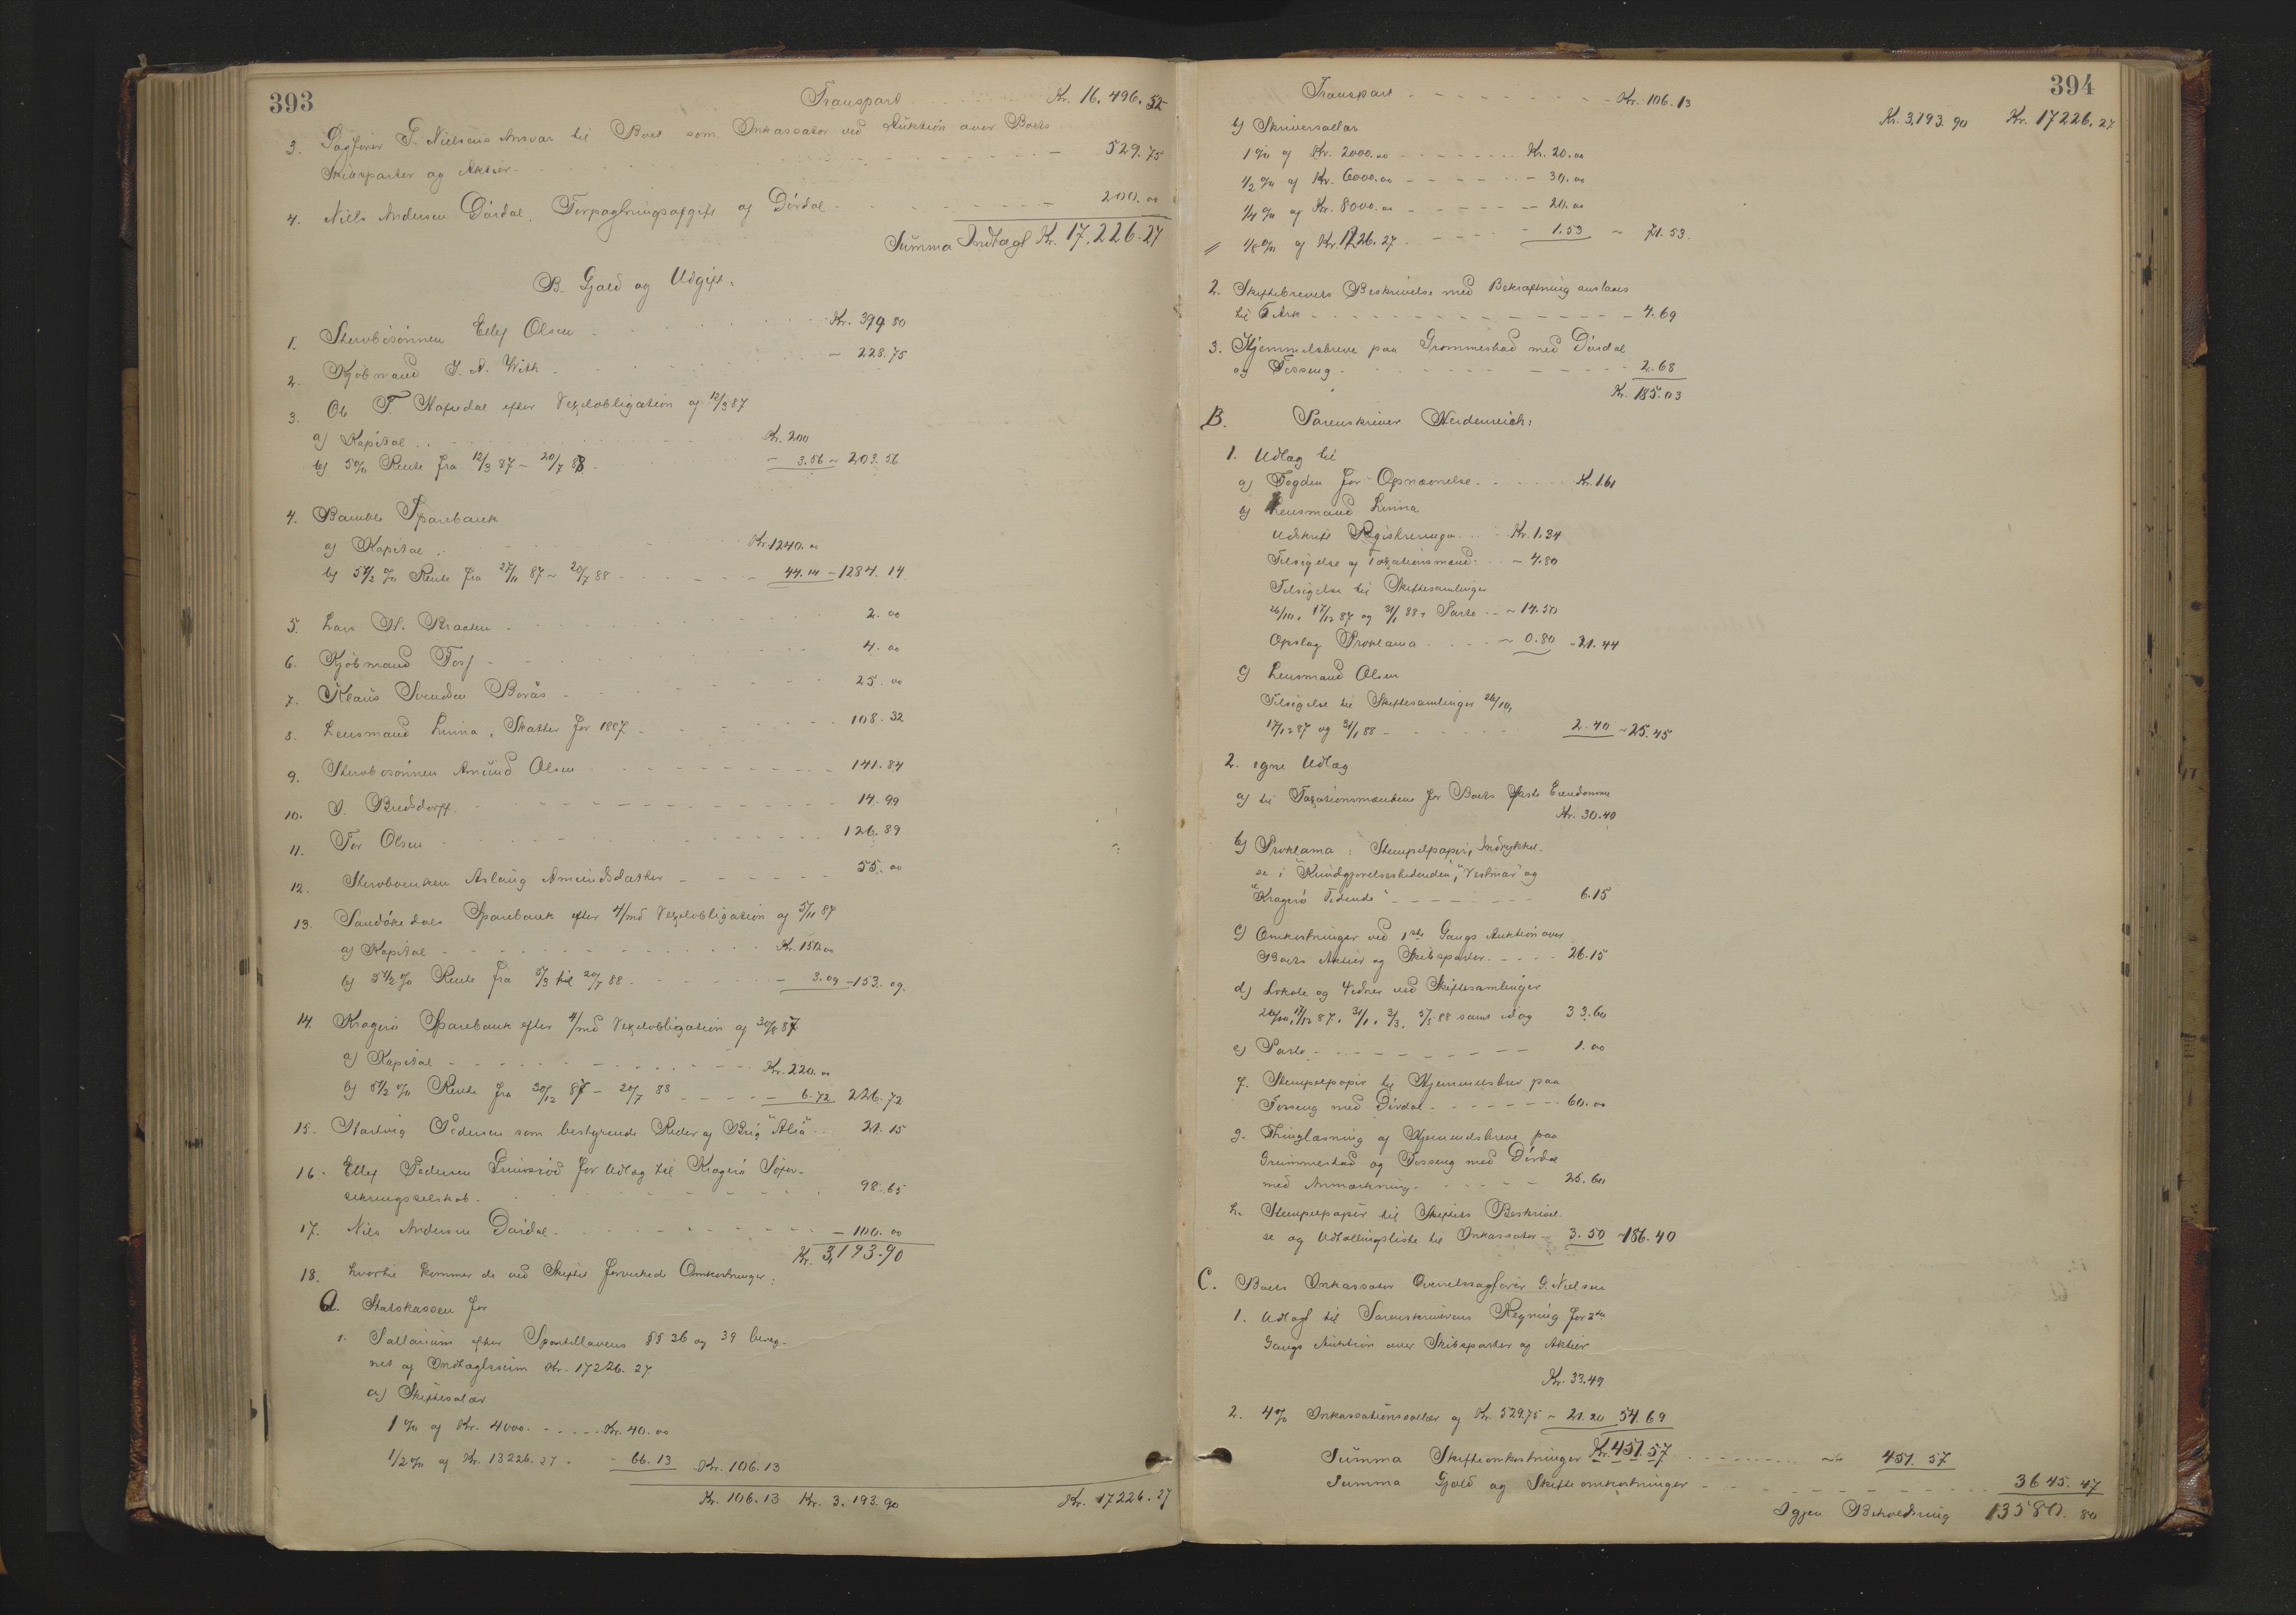 393
Transport Kr. 16.496.52
3. Sagfører G. Nielsens Ansvar til Boet som Inkassator ved Auktion over Boets
Skibsparter og Aktier - 529.75
4. Niels Andersen Dørdal, Forpagtningsafgift af Dørdal - 200.00
Summa Indtægt Kr. 17.226.27
B. Gjæld og Udgift.
1. Stervbosønnen Ellef Olsen Kr. 399 80
2. Kjøbmand J. A. Wirth - 228.75
3. Ole T. Nafsedal efter Vexelobligation af 12/3 87
a) Kapital Kr. 200
b) 5% Rente fra 12/3 87 - 20/7 88 - 3.56 - 203.56
4. Bamble Sparebank
a) Kapital Kr. 1240.00
b) 5 1/2 % Rente fra 27/11 87 - 20/7 88 - 44.14 - 1284.14
5. Lars H. Braaten 2.00
6. Kjøbmand Foss 4.00
7. Klaus Svendsen Borås 25.00
8. Lensmand Linna, Skatter for 1887 108.32
9. Stervbosønnen Amund Olsen 141.84
10. J. Bredsdorff 14.99
11. Tor Olsen 126.89
12. Stervboenken Aslaug Amundsdatter 55.00
13. Sandøkedals Sparebank efter 4/md Vexelobligation af 5/11 87
a) Kapital Kr. 150.00
b) 5 1/2 % Rente fra 5/3 til 20/7 88 - 3.09 - 153.09
14. Kragerø Sparebank efter 4/md Vexelobligation af 30/8 87
a) Kapital Kr. 220.00
b) 5 1/2 % Rente fra 30/12 87 - 20/7 88 - 6.72 226.72
15. Hartvig Pedersen som bestyrende Reder af Brig "Alia" 21.15
16. Ellef Pedersen for Udlæg til Kragerø Søfor-
sikringsselskab 98.65
17. Nils Andersen Dørdal - 100.00
Kr. 3,193.90
18. hvortil kommer de ved Skiftet forvoldte Omkostninger:
A. Statskassen for
1. Sallarium efter Sportellovens §§ 36 og 39 bereg-
net af Indtægtssum Kr. 17226.27
a) Skiftesalær
1 % af Kr. 4000. Kr. 40.00
1/2 % af Kr. 13226.27 - 66.13 Kr. 106.13
Kr. 106.13 Kr. 3.193.90 Kr. 17226.27
394
Transport Kr. 106.13 Kr. 3,193.90 Kr. 17226.27
b) Skriversallær
1 % af Kr. 2000.00 Kr. 20.00
1/2 % af Kr. 6000.00 - 30.00
1/4 % af Kr. 8000.00 - 20.00
1/8 % af Kr. 1226.27 - 1.53 - 71.53
2. Skiftebrevets Beskrivelse med Bekræftning anslaaes
til 6 Ark - 4.69
3. Hjemmelsbreve paa Grommestad med Dørdal
og Fosseng - 2.68
Kr. 185.03
B. Sorenskriver Heidenreich:
1. Udlæg til
a) Fogden for Opnævnelse Kr. 1.61
b) Lensmand Linna
Udskrift Registreringen Kr. 1.34
Tilsigelse af Taxationsmænd - 4.80
Tilsigelse til Skiftesamlinger
26/10, 17/12 87 og 31/1 88 + Porto - 14.50
Opslag Proklama - 0.80 - 21.44
c) Lensmand Olsen
Tilsigelse til Skiftesamlinger 26/10,
17/12 87 og 31/1 88 - 2.40 - 25.45
2. egne Udlæg
a) til Taxationsmændene for Boets faste Eiendomme
Kr. 30.40
b) Proklama: Stempelpapir, Indrykkel-
se i "Kundgjørelsestidenden", "Vestmar" og
"Kragerø Tidende" 6.15
c) Omkostninger ved 1ste Gangs Auktion over
Boets Aktier og Skibsparter - 26.15
d) Lokale og Vidner ved Skiftesamlinger
26/10, 17/12 87, 31/1, 3/3, 5/5 88 samt idag 33.60
e) Porto 1.00
f. Stempelpapir til Hjemmelsbrev paa
Fosseng med Dørdal - 60.00
g. Thinglæsning af Hjemmelsbreve paa
Grummestad og Fosseng med Dørdal
med Anmærkning 25.60
h. Stempelpapir til Skiftets Beskrivel-
se og Udlodningsliste til Inkassator - 3.50 - 186.40
C. Boets Inkassator Overretssagfører G. Nielsen
1. Udlagt til Sorenskriverens Regning for 2den
Gangs Auktion over Skibsparter og Aktier
Kr. 33.49
2. 4% Inkassationssallær af Kr. 529.75 - 21.20 54.69
Summa Skifteomkostninger Kr. 451.57 - 451.57
Summa Gjæld og Skifteomkostninger 3645.47
Igjen Beholdning 13580.80